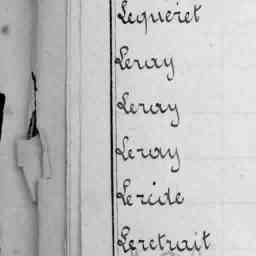 Lequéret
Leray
Leray
Leray
Lerède
Leretrait